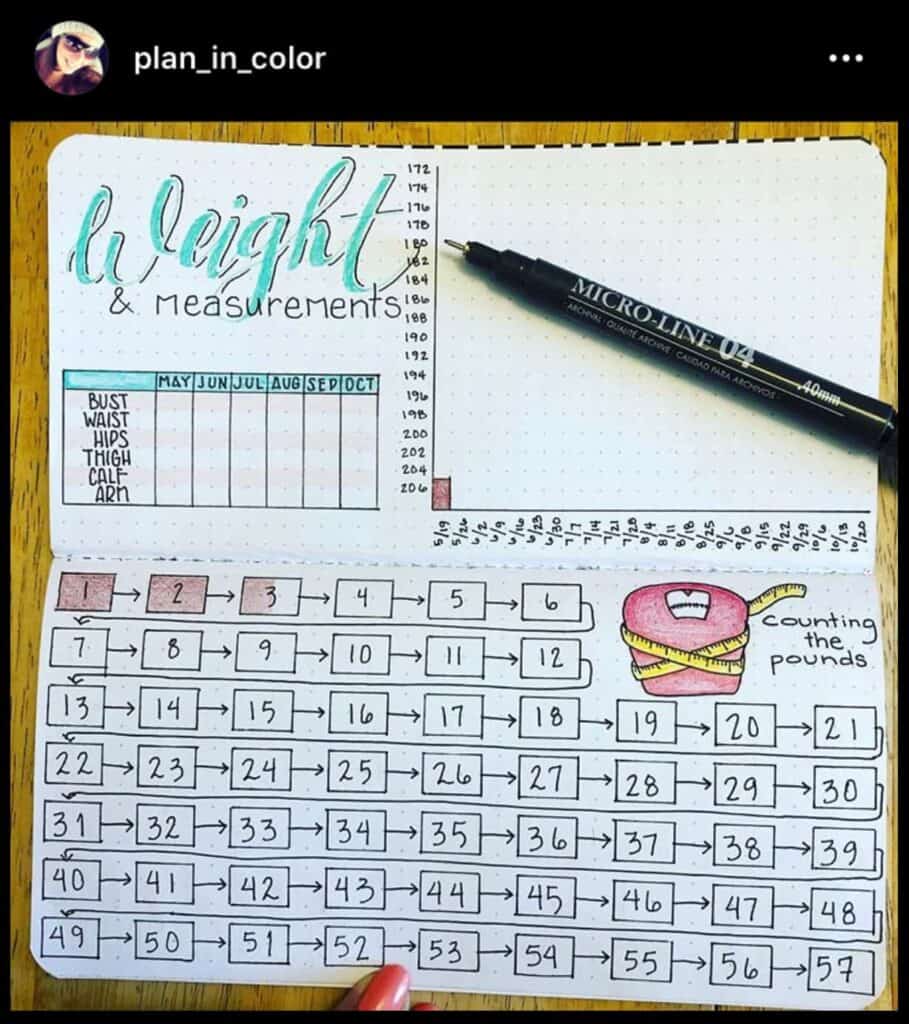 plan_in_color
Weight
& measurements
MAY JUN JUL AUG SEP OCT
BUST
WAIST
HIPS
THIGH
CALF
ARM
172
174
176
178
180
182
184
186
188
190
192
194
196
198
200
202
204
206
5/19 5/26 6/2 6/9 6/16 6/23 6/30 7/7 7/14 7/21 7/28 8/4 8/11 8/18 8/25 9/6 9/8 9/15 9/22 9/29 10/6 10/13 10/20
MICRO-LINE 04
ARCHIVAL · QUALITÉ ARCHIVE · CALIDAD PARA ARCHIVOS ·
.40mm
1 2 3 4 5 6
counting
the
pounds
7 8 9 10 11 12
13 14 15 16 17 18 19 20 21
22 23 24 25 26 27 28 29 30
31 32 33 34 35 36 37 38 39
40 41 42 43 44 45 46 47 48
49 50 51 52 53 54 55 56 57